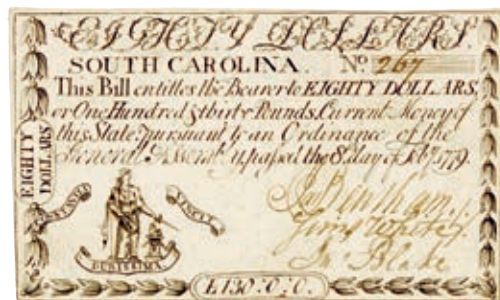 EIGHTY DOLLARS.
SOUTH CAROLINA. No. 267
This Bill entitles the Bearer to EIGHTY DOLLARS,
or One Hundred & thirty Pounds, Current Money of
this State, pursuant to an Ordinance of the
General Assembly, passed the 8 day of Feby. 1779.
EIGHTY
DOLLARS
Jas Bentham
Jno. Blake
£130:0:0.